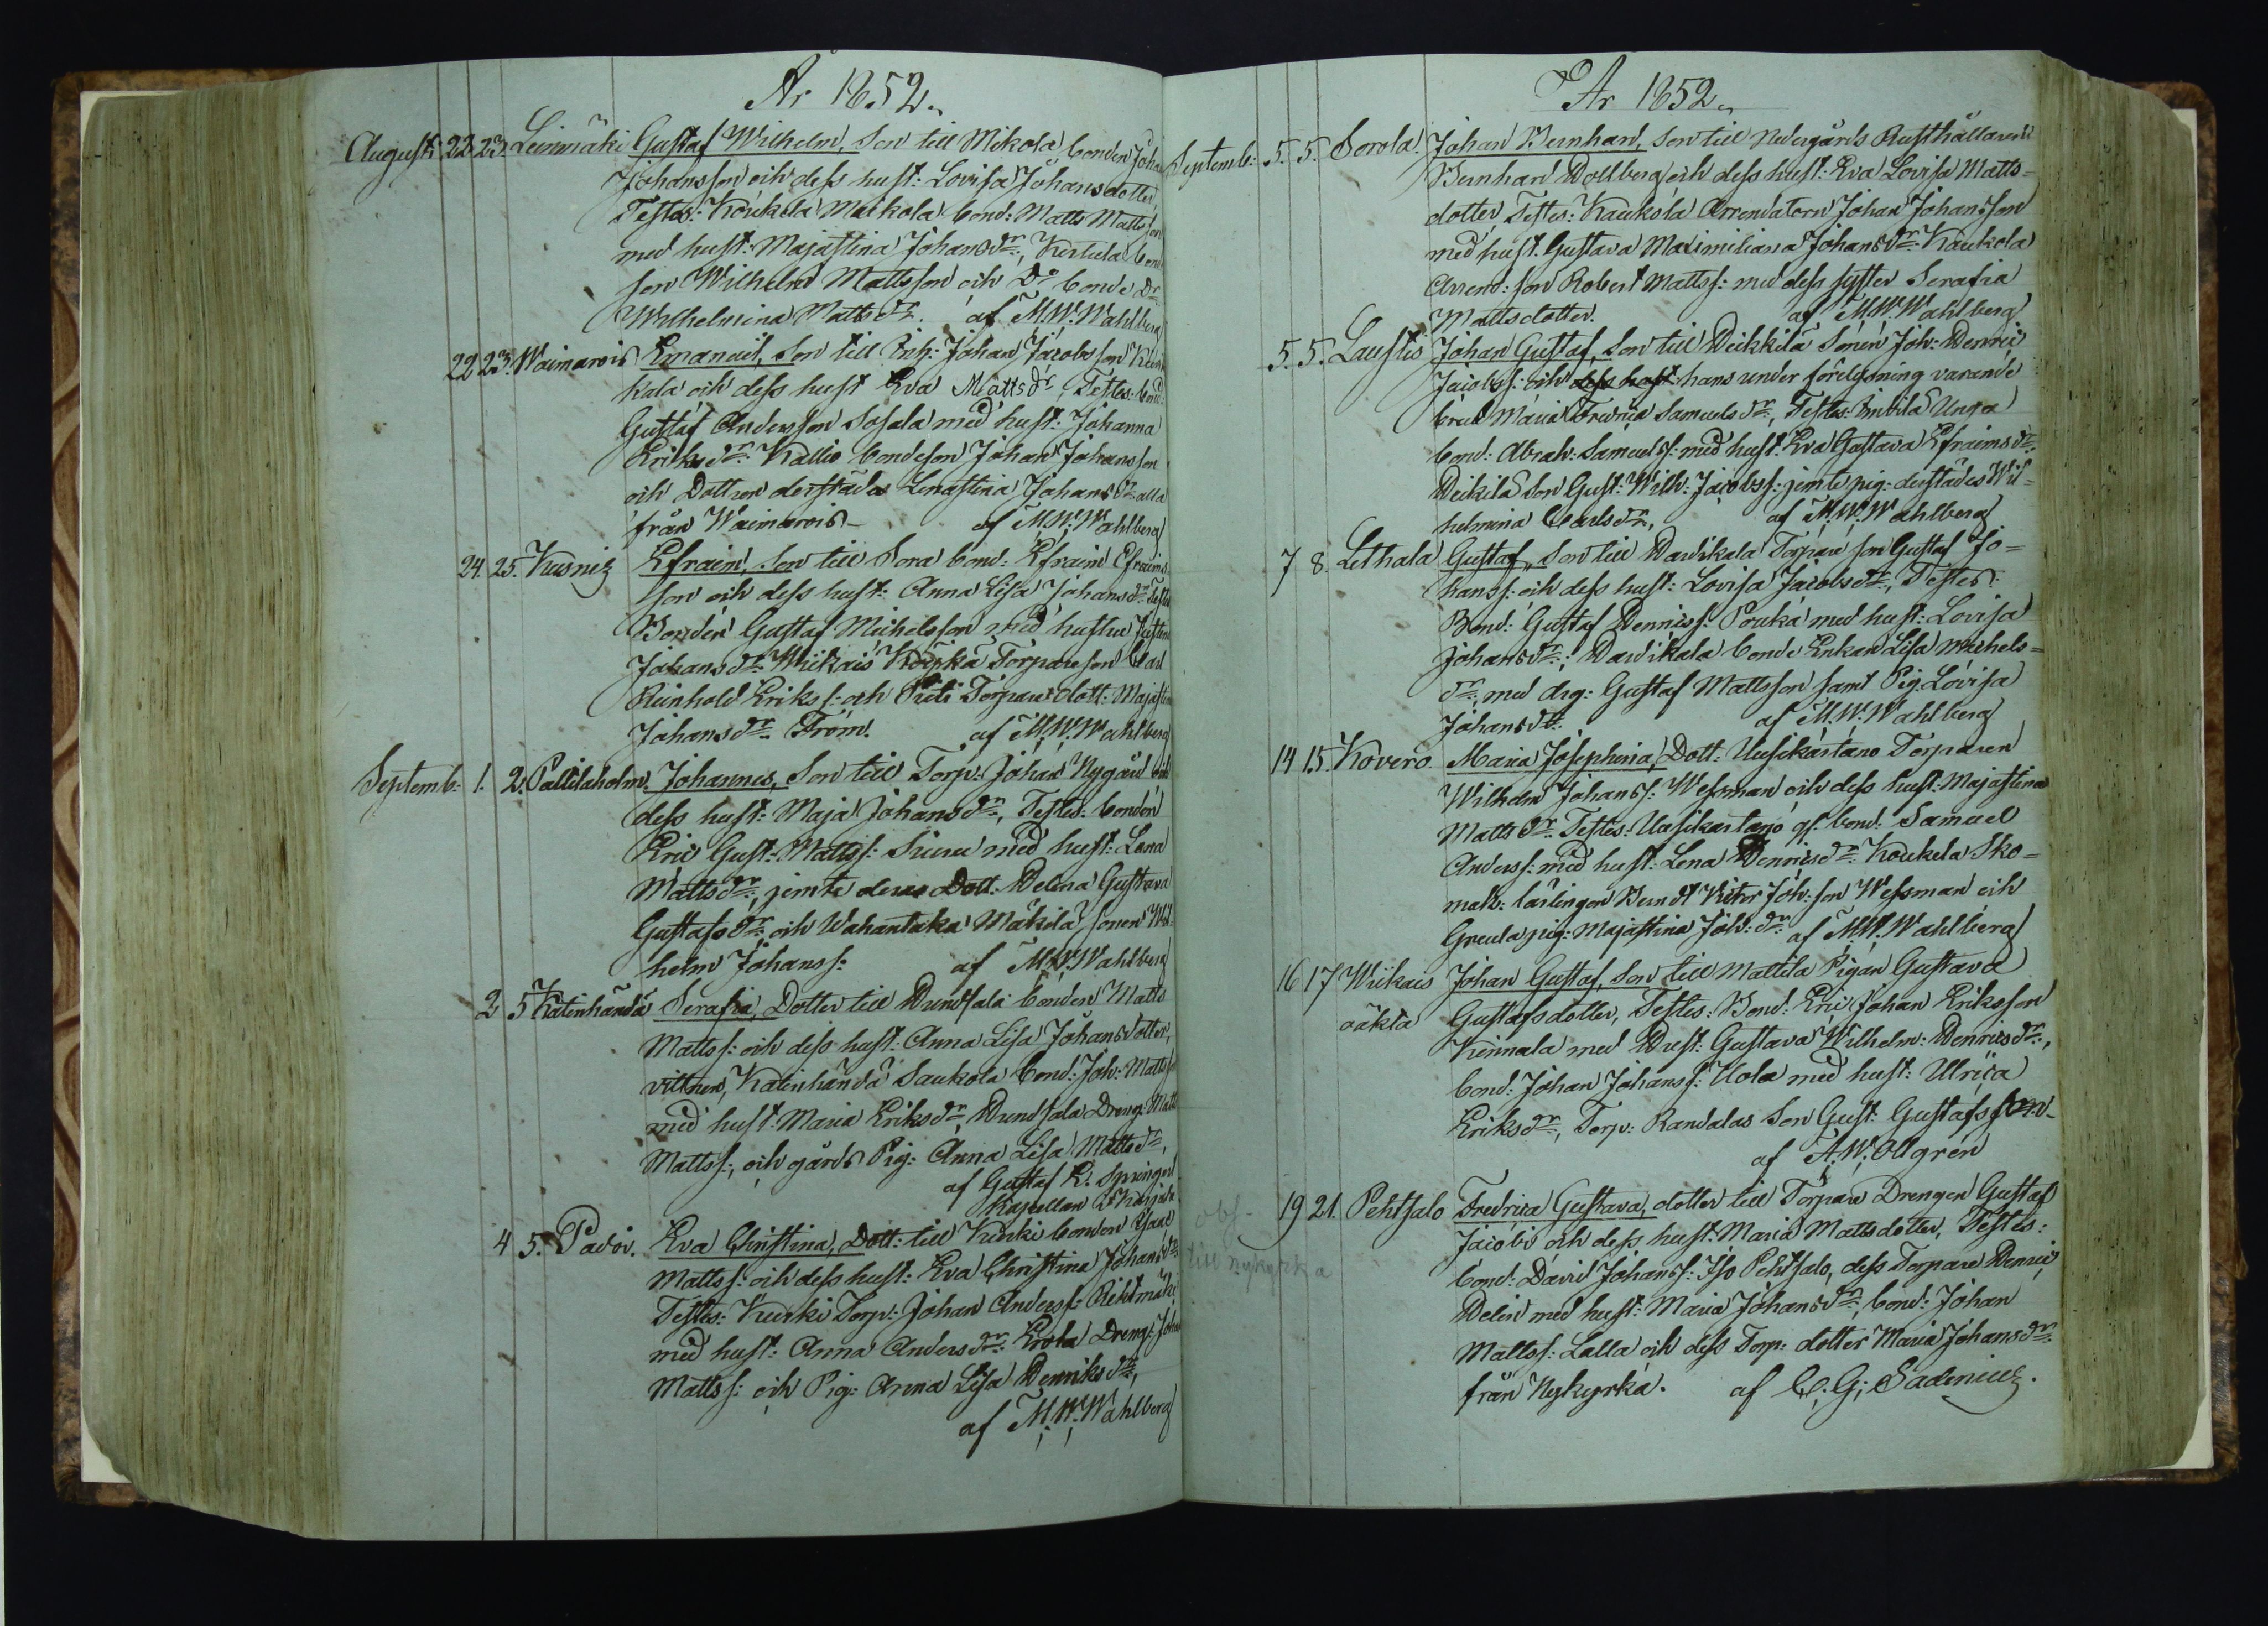 År 1852.
August: 22. 23. Leinmäki Gustaf Wilhelm, Son till Mikola bonden Joha
Johansson och dess hust: Lovisa Johansdotter,
Testes: Koukela Markola bond: Matts Mattsson
med hust: Majastina Johansdr:, Kertula bond
son Wilhelm Mattsson och Do bonde Dr:
Wilhelmina Matts dr. af M. W. Wahlberg
22 23. Waimaro Emanuel, Son till Inh: Johan Jacobsson
kala och dess hust Eva Mattsdr, Testes: bond:
Gustaf Andersson Sasala med hust: Johanna
Eriksdr: Kallio bondeson Johan Johansson
och Dottren derstädes Lenastina Johansdr: alla
från Waimaro af M. W. Wahlberg
24. 25. Kusni Efraim, Son till Sora bond: Efraim Efraims
son och dess hust: Anna Lisa Johansdr: Testes
Bonden Gustaf Michelsson med hustru Justina
Johansdr: Wiikais Torpareson Carl
Reinhold Erikss: och Torpare dott: Majastina
Johansdr: Fröm. af M. W. Wahlberg
Septemb: 1. 2. Paltilaholm. Johannes, Son till Torp: Johan Nygård och
dess hust: Maja Johansdr:, Testes: bonden
Eric Gust: Mattss: med hust: Lena
Mattsdr: jemte deras Dott: Helena Gustava
Gustafsdr: och Wahantaka Mäkilä sonen Wil
helm Johanss: af M. W. Wahlberg
2 5 Katinhäntä Serafia, Dotter till Hundsala bonden Matts
Mattss: och dess hust: Anna Lisa Johansdotter,
vittnen, Katinhäntä Saukola bond: Joh: Mattsson
med hust: Maria Eriksdr:, Hundsala Dreng: Matts
Mattss:, och gårds Pig: Anna Lisa Mattsdr,
af Gustaf E. Springert
Kapellan
4 5. Padoi. Eva Christina, Dott: till Kurki bonden Isaac
Mattss: och dess hust: Eva Christina Johansdr:
Testes: Kurki Torp: Johan Anderss:
med hust: Anna Andersdr: Krola Dreng: Johan
Mattss: och Pig: Anna Lisa Henriksdr:,
af M. W. Wahlberg
År 1852.
Septemb: 5. 5. Sorola. Johan Bernhard, Son till Nedergårds Rusthållaren
Bernhard Hollberg och dess hust: Eva Lovisa Matts-
dotter, Testes: Kaukola Arrendatorn Johan Johansson
med hust: Gustava Maximiliana Johansdr: Kaukola
Arrend: son Robert Mattss: med dess syster Serafia
Mattsdotter. af M. W. Wahlberg
5. 5. Laustis Johan Gustaf, Son till Heikkilä Sonen Joh: Henric
Jacobss: och dess hust hans under förelysning varande
brud Maria Fredrica Samuelsdr:, Testes: Anttila Unga
bond: Abrah: Samuelss: med hust: Eva Gustava Efraimsdr:
Heikilä son Gust: Wilh: Jacobss: jemte pig: derstädes Wil-
helmina Carlsdr:, af M. W. Wahlberg
7 8. Lethala Gustaf, Son till Haudikala Torpare son Gustaf Jo-
hanss: och dess hust: Lovisa Jacobsdr:, Testes:
Bond: Gustaf Henricss: Pouka med hust: Lovisa
Johansdr:, Haudikala bonde Enkan Lisa Michels-
dr:, med drg: Gustaf Mattsson samt Pig: Lovisa
Johansdr: af M. W. Wahlberg
14 15. Kovero. Maria Josephina, Dott: Uusikartano Torparen
Wilhelm Johanss: Wessman och dess hust: Majastina
Mattsdr: Testes: Uusikartano gl. bond: Samuel
Anderss: med hust: Lena Henricsdr: Koukela Sko-
mak: lärlingen Berndt Victor Joh: son Wessman och
Greula pig: Majastina Joh: dr: af M. W. Wahlberg
16 17 Wiikais Johan Gustaf, Son till Mattila Pigan Gustava
oäkta Gustafsdotter, Testes: Bond: Eric Johan Eriksson
Kinnala med Hust: Gustava Wilhelm: Henricsdr:,
bond: Johan Johanss: Uola med hust: Ulrica
Eriksdr:, Torp: Randalas Son Gust: Gustafsson
af A. W. Ollgren
obs- 19 21. Pehtsalo Fredrica Gustava, dotter till Torpare Drengen Gustaf
till nykyrka Jacobs och dess hust: Maria Mattsdotter, Testes:
bond: David Johanss: Iso Pehtsalo, dess Torpare Henric
Helin med hust: Maria Johansdr:, bond: Johan
Mattss: Lalla och dess Torp: dotter Maria Johansdr:
från Nykyrka. af C. G. Sadenius.